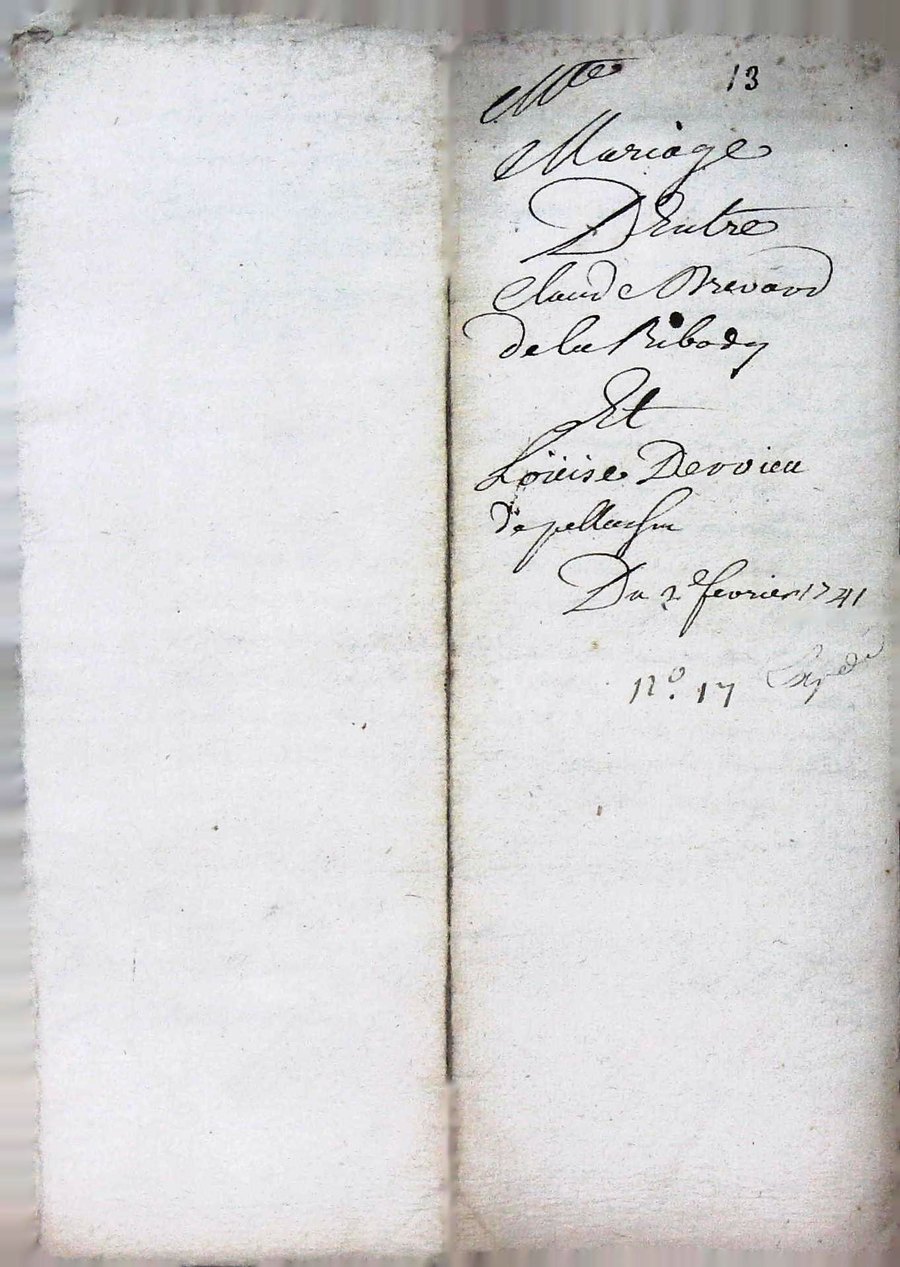 13
Mariage
D'Entre
Claude Brevard
de la Ribody
Et
Loüise Dervieu
Du 2e fevrier 1741
no. 17